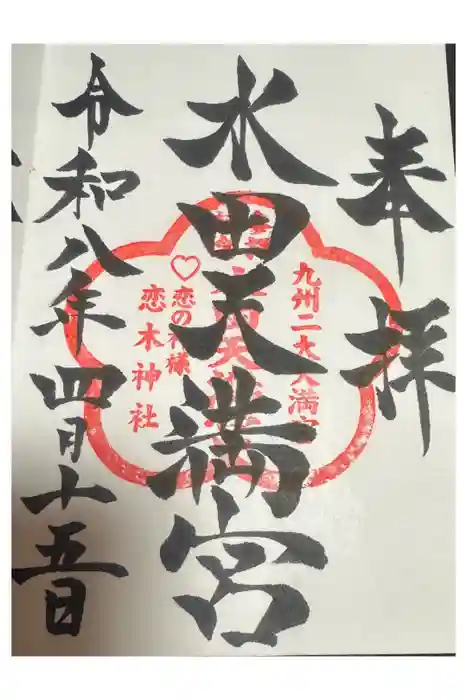 奉拝
九州二大天満宮
水田天満宮
♡恋の神様
恋木神社
令和八年四月十五日